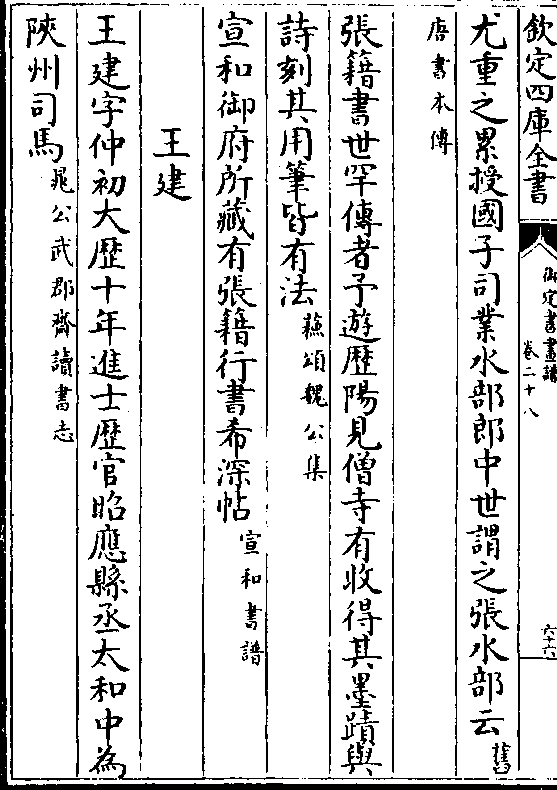 欽定四庫全書
御定書畫譜
卷二十八
六十六
尤重之累授國子司業水部郎中世謂之張水部云舊
唐書本傳
張籍書世罕傳者予遊歴陽見僧寺有收得其墨蹟與
詩刻其用筆皆有法蘇頌魏公集
宣和御府所藏有張籍行書希深帖宣和書譜
王建
王建字仲初大歴十年進士歴官昭應縣丞太和中為
陜州司馬晁公武郡齋讀書志